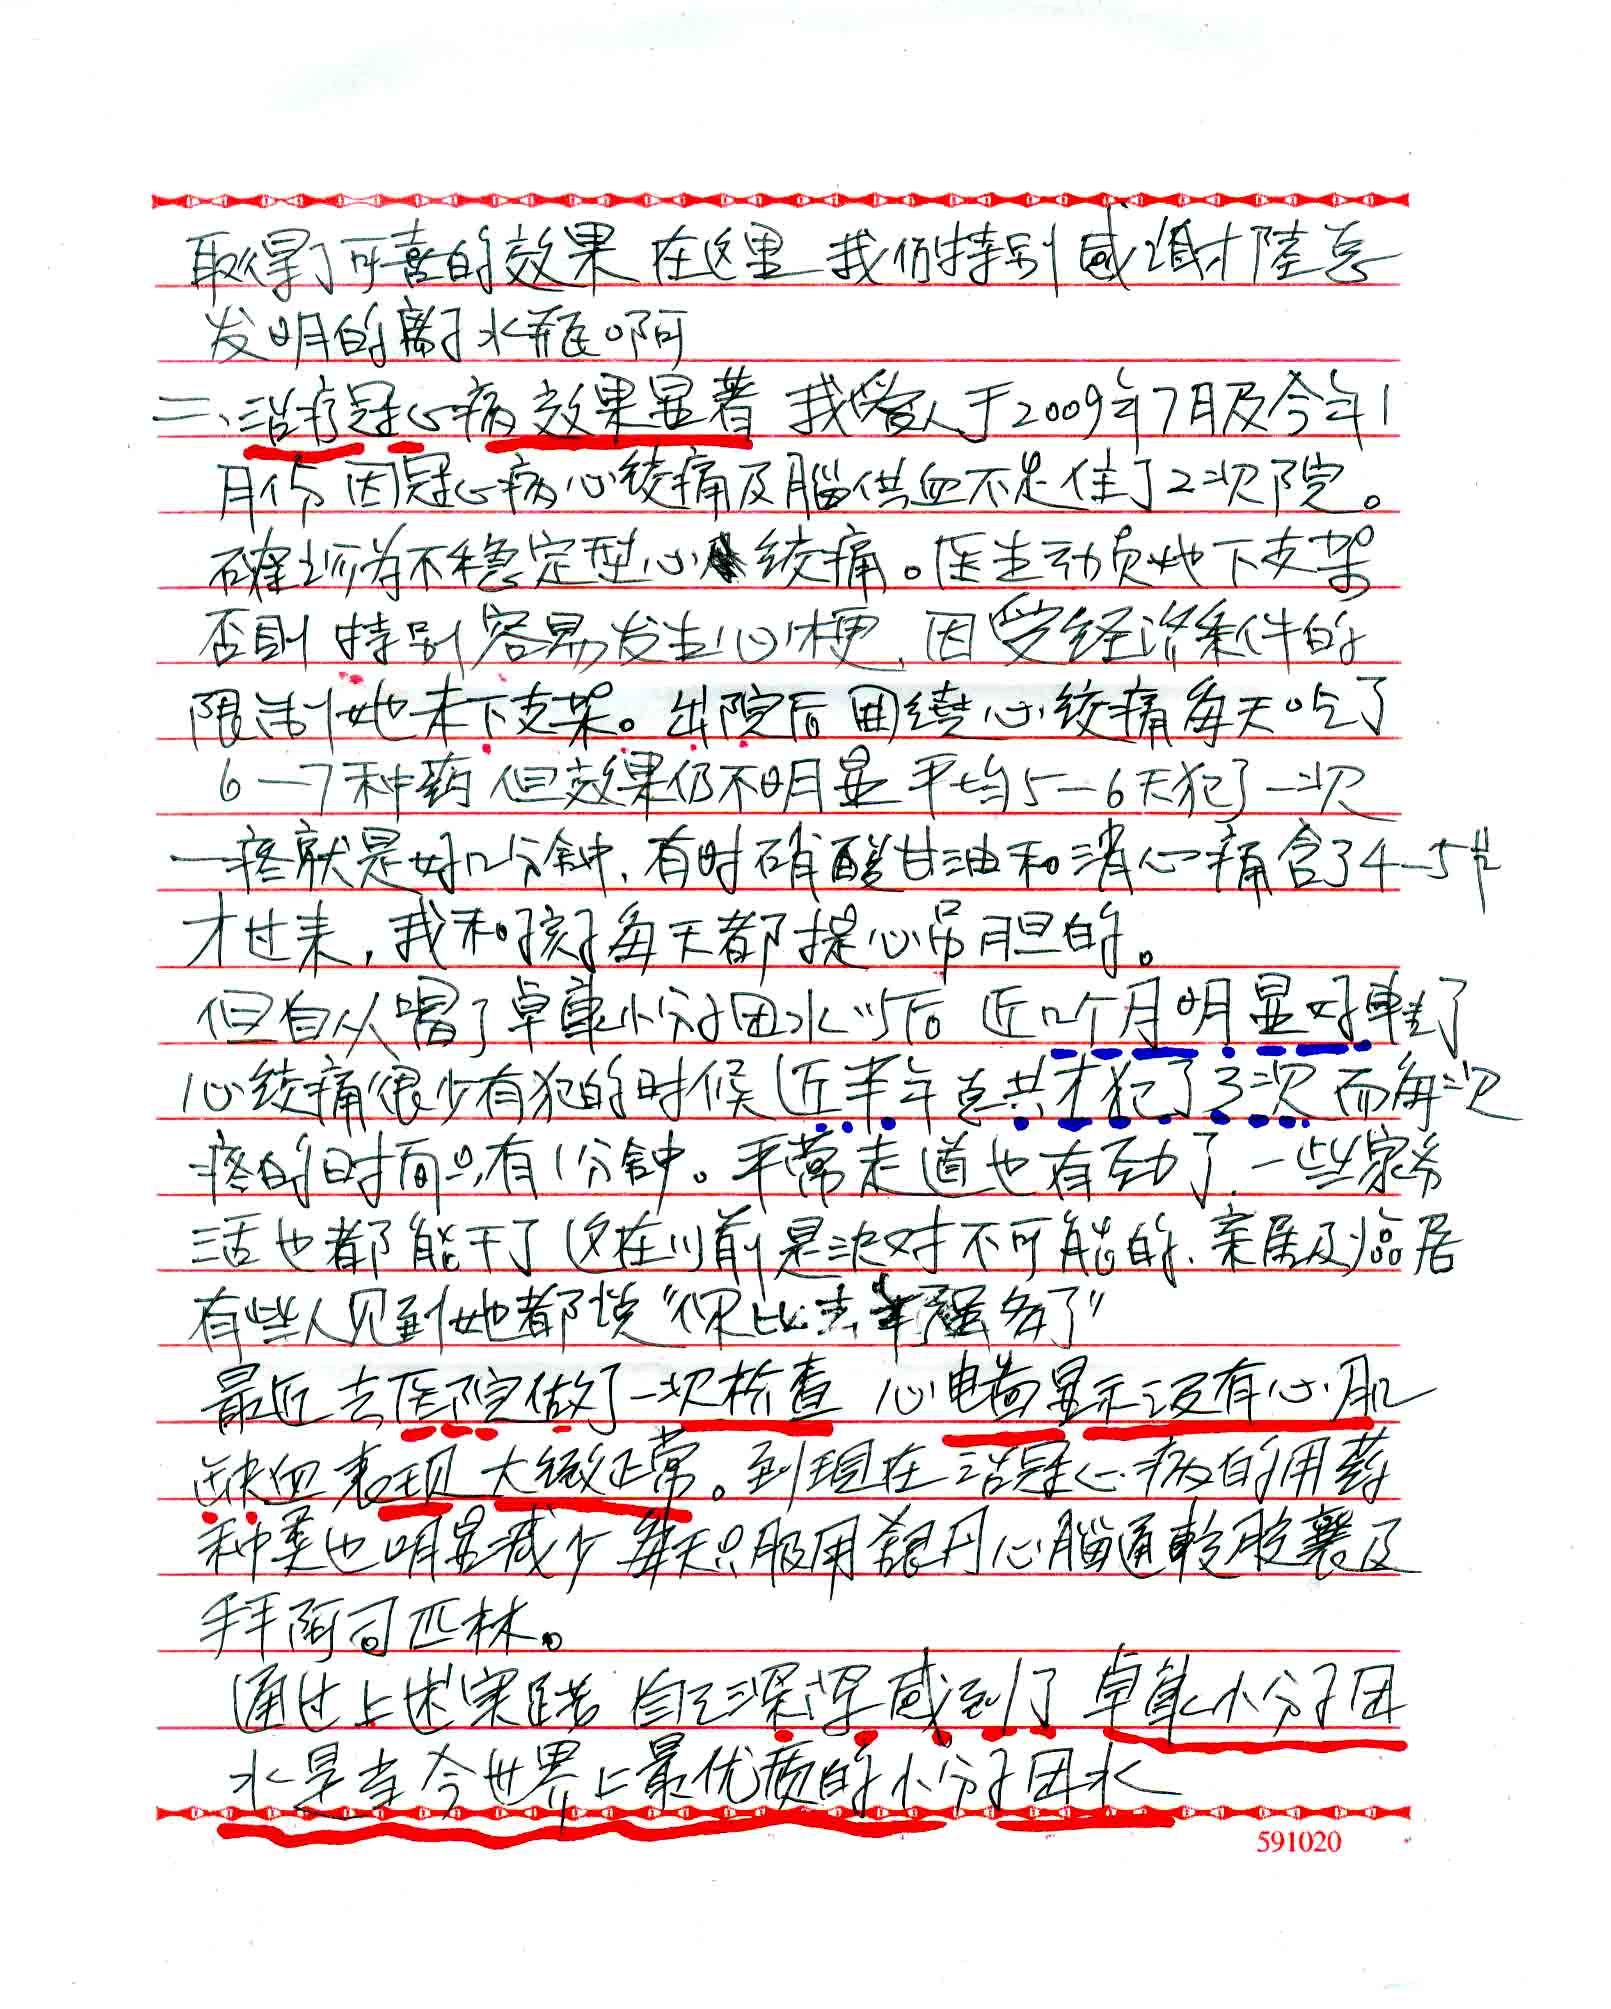 取得了可喜的效果 在这里 我们特别感谢才陆总
发明的离子水瓶啊
二、治疗冠心病效果显著 我爱人于2009年7月及今年1
月份因冠心病心绞痛及脑供血不足住了2次院。
确诊为不稳定型心绞痛。医生动员她下支架
否则特别容易发生心梗，因受经济条件的
限制她未下支架。出院后围绕心绞痛每天吃了
6—7种药 但效果仍不明显 平均5—6天犯了一次
一疼就是好几分钟，有时硝酸甘油和消心痛含了4—5片
才过来，我和孩子每天都提心吊胆的。
但自从喝了卓康小分子团水以后 近几个月明显好转了
心绞痛很少有犯的时候 近半年总共才犯了3次 而每次
疼的时间只有1分钟。平常走道也有劲了，一些家务
活也都能干了 这在以前是决对不可能的，亲属及临居
有些人见到她都说“你比去年强多了”
最近去医院做了一次检查 心电图显示没有心肌
缺血表现 大致正常。到现在治冠心病的用药
种类也明显减少 每天只服用银丹心脑通软胶囊及
拜阿司匹林。
通过上述实践 自己深深感到了 卓康小分子团
水是当今世界上最优质的小分子团水
591020